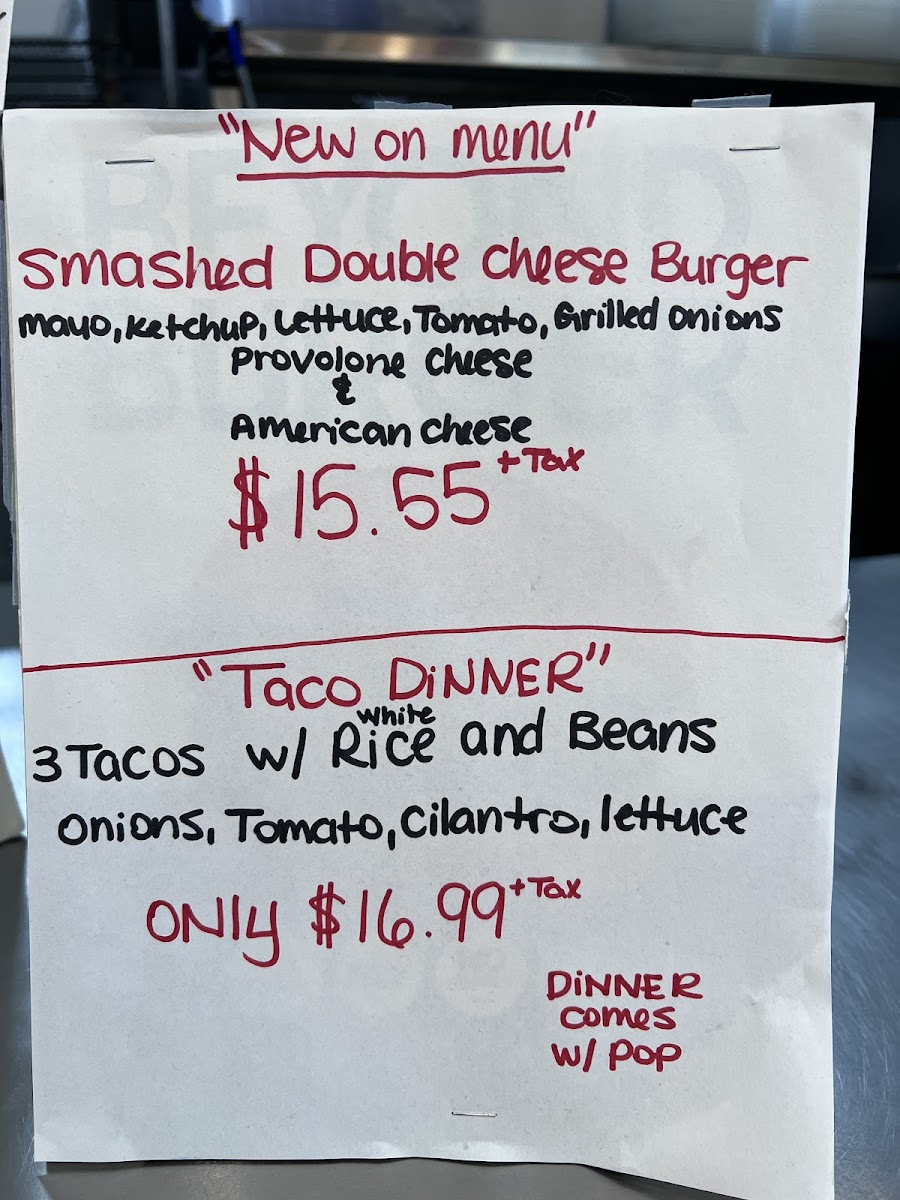 "New on menu"
Smashed Double Cheese Burger
mayo, Ketchup, Lettuce, Tomato, Grilled onions
Provolone Cheese
&
American Cheese
$15.55 + Tax
"Taco DiNNER"
3 Tacos w/ White Rice and Beans
onions, Tomato, Cilantro, lettuce
ONly $16.99 + Tax
DiNNER
comes
w/ POP
BEYOND
BURGER